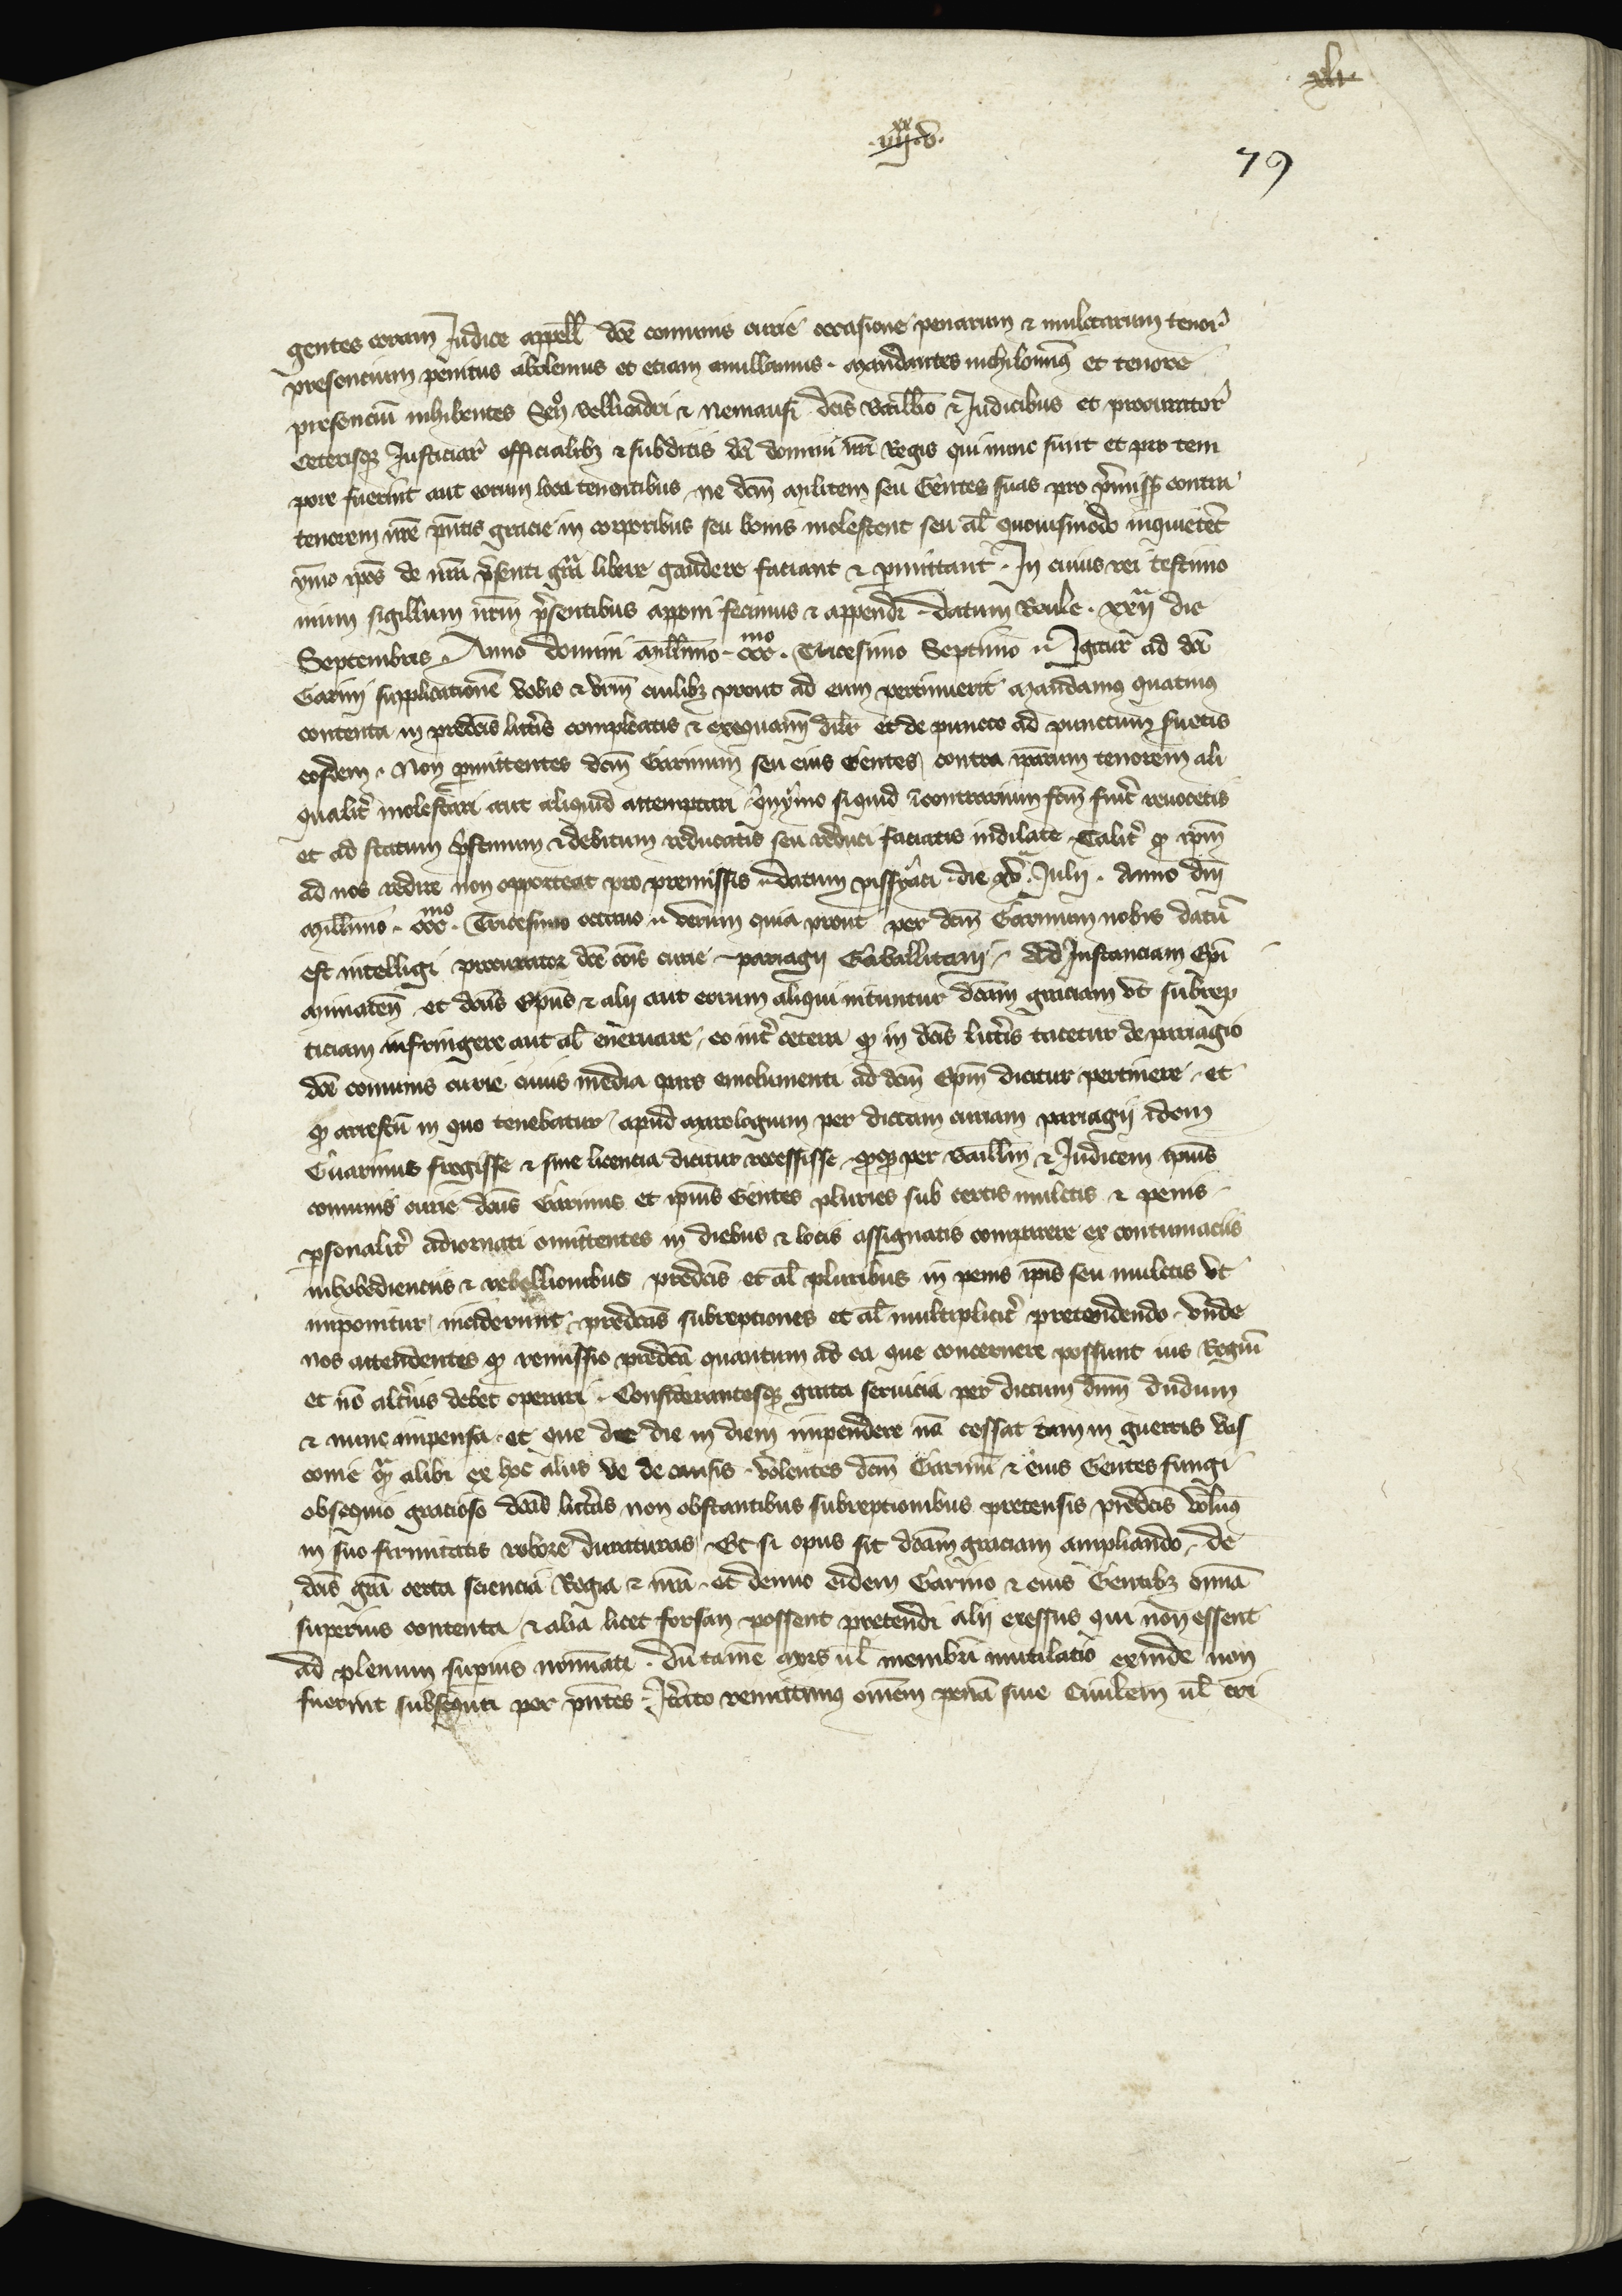 xli
iiii xx v
79
gentes coram Judice appell dce comunis curie occasione penarum & mulctarum tenor
presencium penitus abolemus et eciam anullamus . Mandantes nichilominus et tenore
presenciu inhibentes Sen Bellicadri & Nemausi dcis Baillio & Judicibus et procurator
ceterisque Justiciar officialibus & subditis dci domini nri Regis qui nunc sunt et pro tem
pore fuerint aut eorum loca tenentibus ne dcm Militem seu Gentes suas pro premissis contra
tenorem nre pntis gracie in corporibus seu bonis molestent seu al quouismodo inquietent
ymo ipos de nra presenti gra libere gaudere faciant & permittant . In cuius rei testimo
nium sigillum nrm presentibus apponi fecimus & appendi . Datum Regule . xxii die
Septembris . Anno domini millimo ccc mo . Tricesimo Septimo Igitur ad dci
Garini supplicacione vobis & vrm cuilibet prout ad eum pertinuerit mandamus quatinus
contenta in predcis litteris compleatis & exequamini dilr et de puncto ad punctum faciatis
eosdem . Non permittentes dcm Garinum seu eius Gentes contra iparum tenorem ali
qualiter molestari aut aliquid attemptari quinymo siquid incontrarium fcm fuerit reuocetis
et ad statum pristinum & debitum reducatis seu reduci faciatis indilate Taliter quod ipm
ad nos redire non opporteat pro premissis Datum pissyaci . die xv . Julii . Anno dni
Millimo . ccc mo . Tricesimo octauo verum quia prout per dcm Garinum nobis datur
est intelligi procurator dce cois curie pariagii Gaballitani . Ad Instanciam Epi
Mimaten et dcus Epus & alii aut eorum aliqui nituntur dcam graciam vt subrep
ticiam infringere aut al eneruare , eo inter cetera quod in dcis litteris tacetur de pariagio
dce comunis curie cuius media pars emolumenti ad dcm Epm dicitur pertinere , et
quod arrestu in quo tenebatur apud Marologium per dictam curiam pariagii idem
Guarinus fregisse & sine licencia dicitur recessisse quodque per Baillm & Judicem ipius
comunis curie dcus Garinus et ipius Gentes pluries sub certis mulctis & penis
personaliter adiornati omittentes in diebus & locis assignatis comparere ex contumaciis
inhobedienciis & rebellionibus predcis et al pluribus in penis ipis seu mulctis vt
imponitur inciderunt predcas subrepciones et al multipliciter pretendendo . Vnde
nos attendentes quod remissio predca quantum ad ea que concernere possunt ius Regiu
et no alterius debet operari . Considerantesque grata seruicia per dictum dnm dudum
& nunc impensa et que de die in diem impendere no cessat tam in guerris vas
conie quam alibi ex hoc aliis ve de causis . volentes dcm Garinu & eius Gentes fungi
obsequio gracioso dcas litteras non obstantibus subrepcionibus pretensis predcis volumus
in suo firmitatis robore duraturas . Et si opus sit dcam graciam ampliando , de
dcis gra certa sciencia Regia & nra et denuo eidem Garino & eius Gentibus omia
superius contenta & alia licet forsan possent pretendi alii excessus qui non essent
ad plenum superius nominati . Du tamen mors ul membri mutilacio exinde non
fuerint subsequti per pntes . Iterato remittimus omem pena siue Ciuilem ul cri